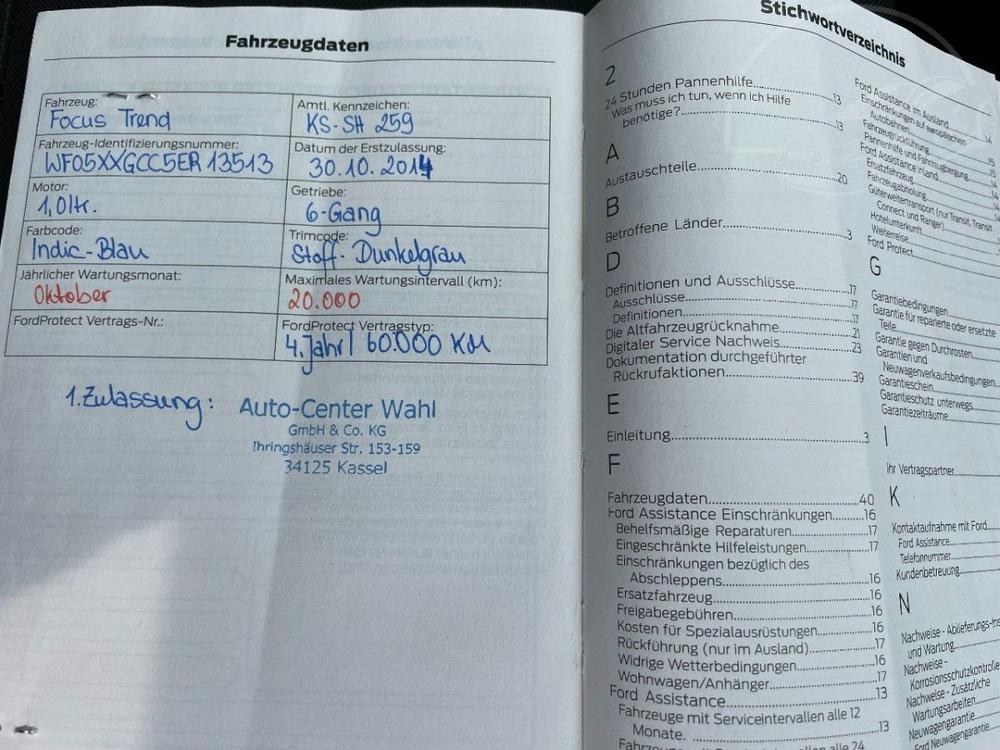 Fahrzeugdaten
Fahrzeug:
Focus Trend
Amtl. Kennzeichen:
KS-SH 259
Fahrzeug-Identifizierungsnummer:
WF05XXGCC5ER13513
Datum der Erstzulassung:
30.10.2014
Motor:
1,0ltr.
Getriebe:
6-Gang
Farbcode:
Indic-Blau
Trimcode:
Stoff- Dunkelgrau
Jährlicher Wartungsmonat:
Oktober
Maximales Wartungsintervall (km):
20.000
FordProtect Vertrags-Nr.:
FordProtect Vertragstyp:
4.Jahr/ 60.000 KM
1.Zulassung:
Auto-Center Wahl
GmbH & Co. KG
Ihringshäuser Str. 153-159
34125 Kassel
Stichwortverzeichnis
2
24 Stunden Pannenhilfe...13
Was muss ich tun, wenn ich Hilfe
benötige?...13
A
Austauschteile...20
B
Betroffene Länder...3
D
Definitionen und Ausschlüsse...17
Ausschlüsse...17
Definitionen...17
Die Altfahrzeugrücknahme...21
Digitaler Service Nachweis...23
Dokumentation durchgeführter
Rückrufaktionen...39
E
Einleitung...3
F
Fahrzeugdaten...40
Ford Assistance Einschränkungen...16
Behelfsmäßige Reparaturen...17
Eingeschränkte Hilfeleistungen...17
Einschränkungen bezüglich des
Abschleppens...16
Ersatzfahrzeug...16
Freigabegebühren...16
Kosten für Spezialausrüstungen...16
Rückführung (nur im Ausland)...17
Widrige Wetterbedingungen...16
Wohnwagen/Anhänger...17
Ford Assistance...13
Fahrzeuge mit Serviceintervallen alle 12
Monate....13
Ford Assistance im Ausland...14
Einschränkungen auf europäischen
Autobahnen...
Fahrzeugrückführung...15
Pannenhilfe und Fahrzeugbergung...
Ford Assistance Inland...14
Ersatzfahrzeug...14
Fahrzeugabholung...
Güterweitertransport (nur Transit, Transit
Connect und Ranger)...
Hotelunterkunft...
Weiterreise...
Ford Protect...
G
Garantiebedingungen...
Garantie für reparierte oder ersetzte
Teile...
Garantie gegen Durchrosten...
Garantien und
Neuwagenverkaufsbedingungen...
Garantieschein...
Garantieschutz unterwegs...
Garantiezeiträume...
I
Ihr Vertragspartner...
K
Kontaktaufnahme mit Ford...
Ford Assistance...
Telefonnummer...
Kundenbetreuung...
N
Nachweise - Ablieferungs-Ins
und Wartung...
Nachweise -
Korrosionsschutzkontrolle
Nachweise - Zusätzliche
Wartungsarbeiten
Neuwagengarantie...
Ford Neuwagengarantie...